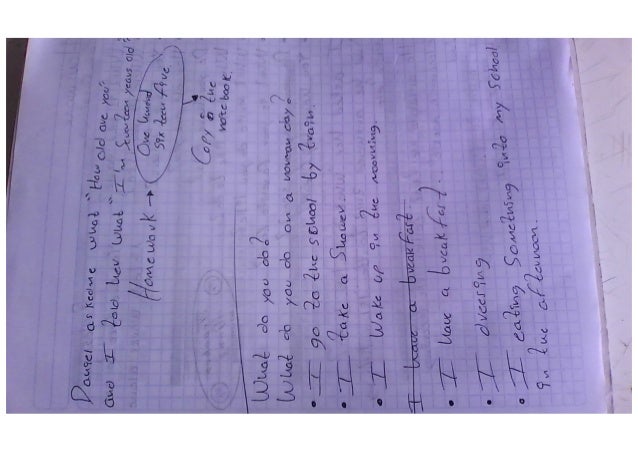 Daniel askedme what "How old are you"
and I told her what "I'm seventeen years old"
Homework → One hundred
Sixteen five
Copy a the
notebook.
What do you do?
What do you do on a norman day?
• I go to the school by train.
• I take a Shower.
• I Wake up in the moorning.
I have a breakfast
• I Have a breakfast.
• I dreesing
• I eating Something into my School
in the afternoon.